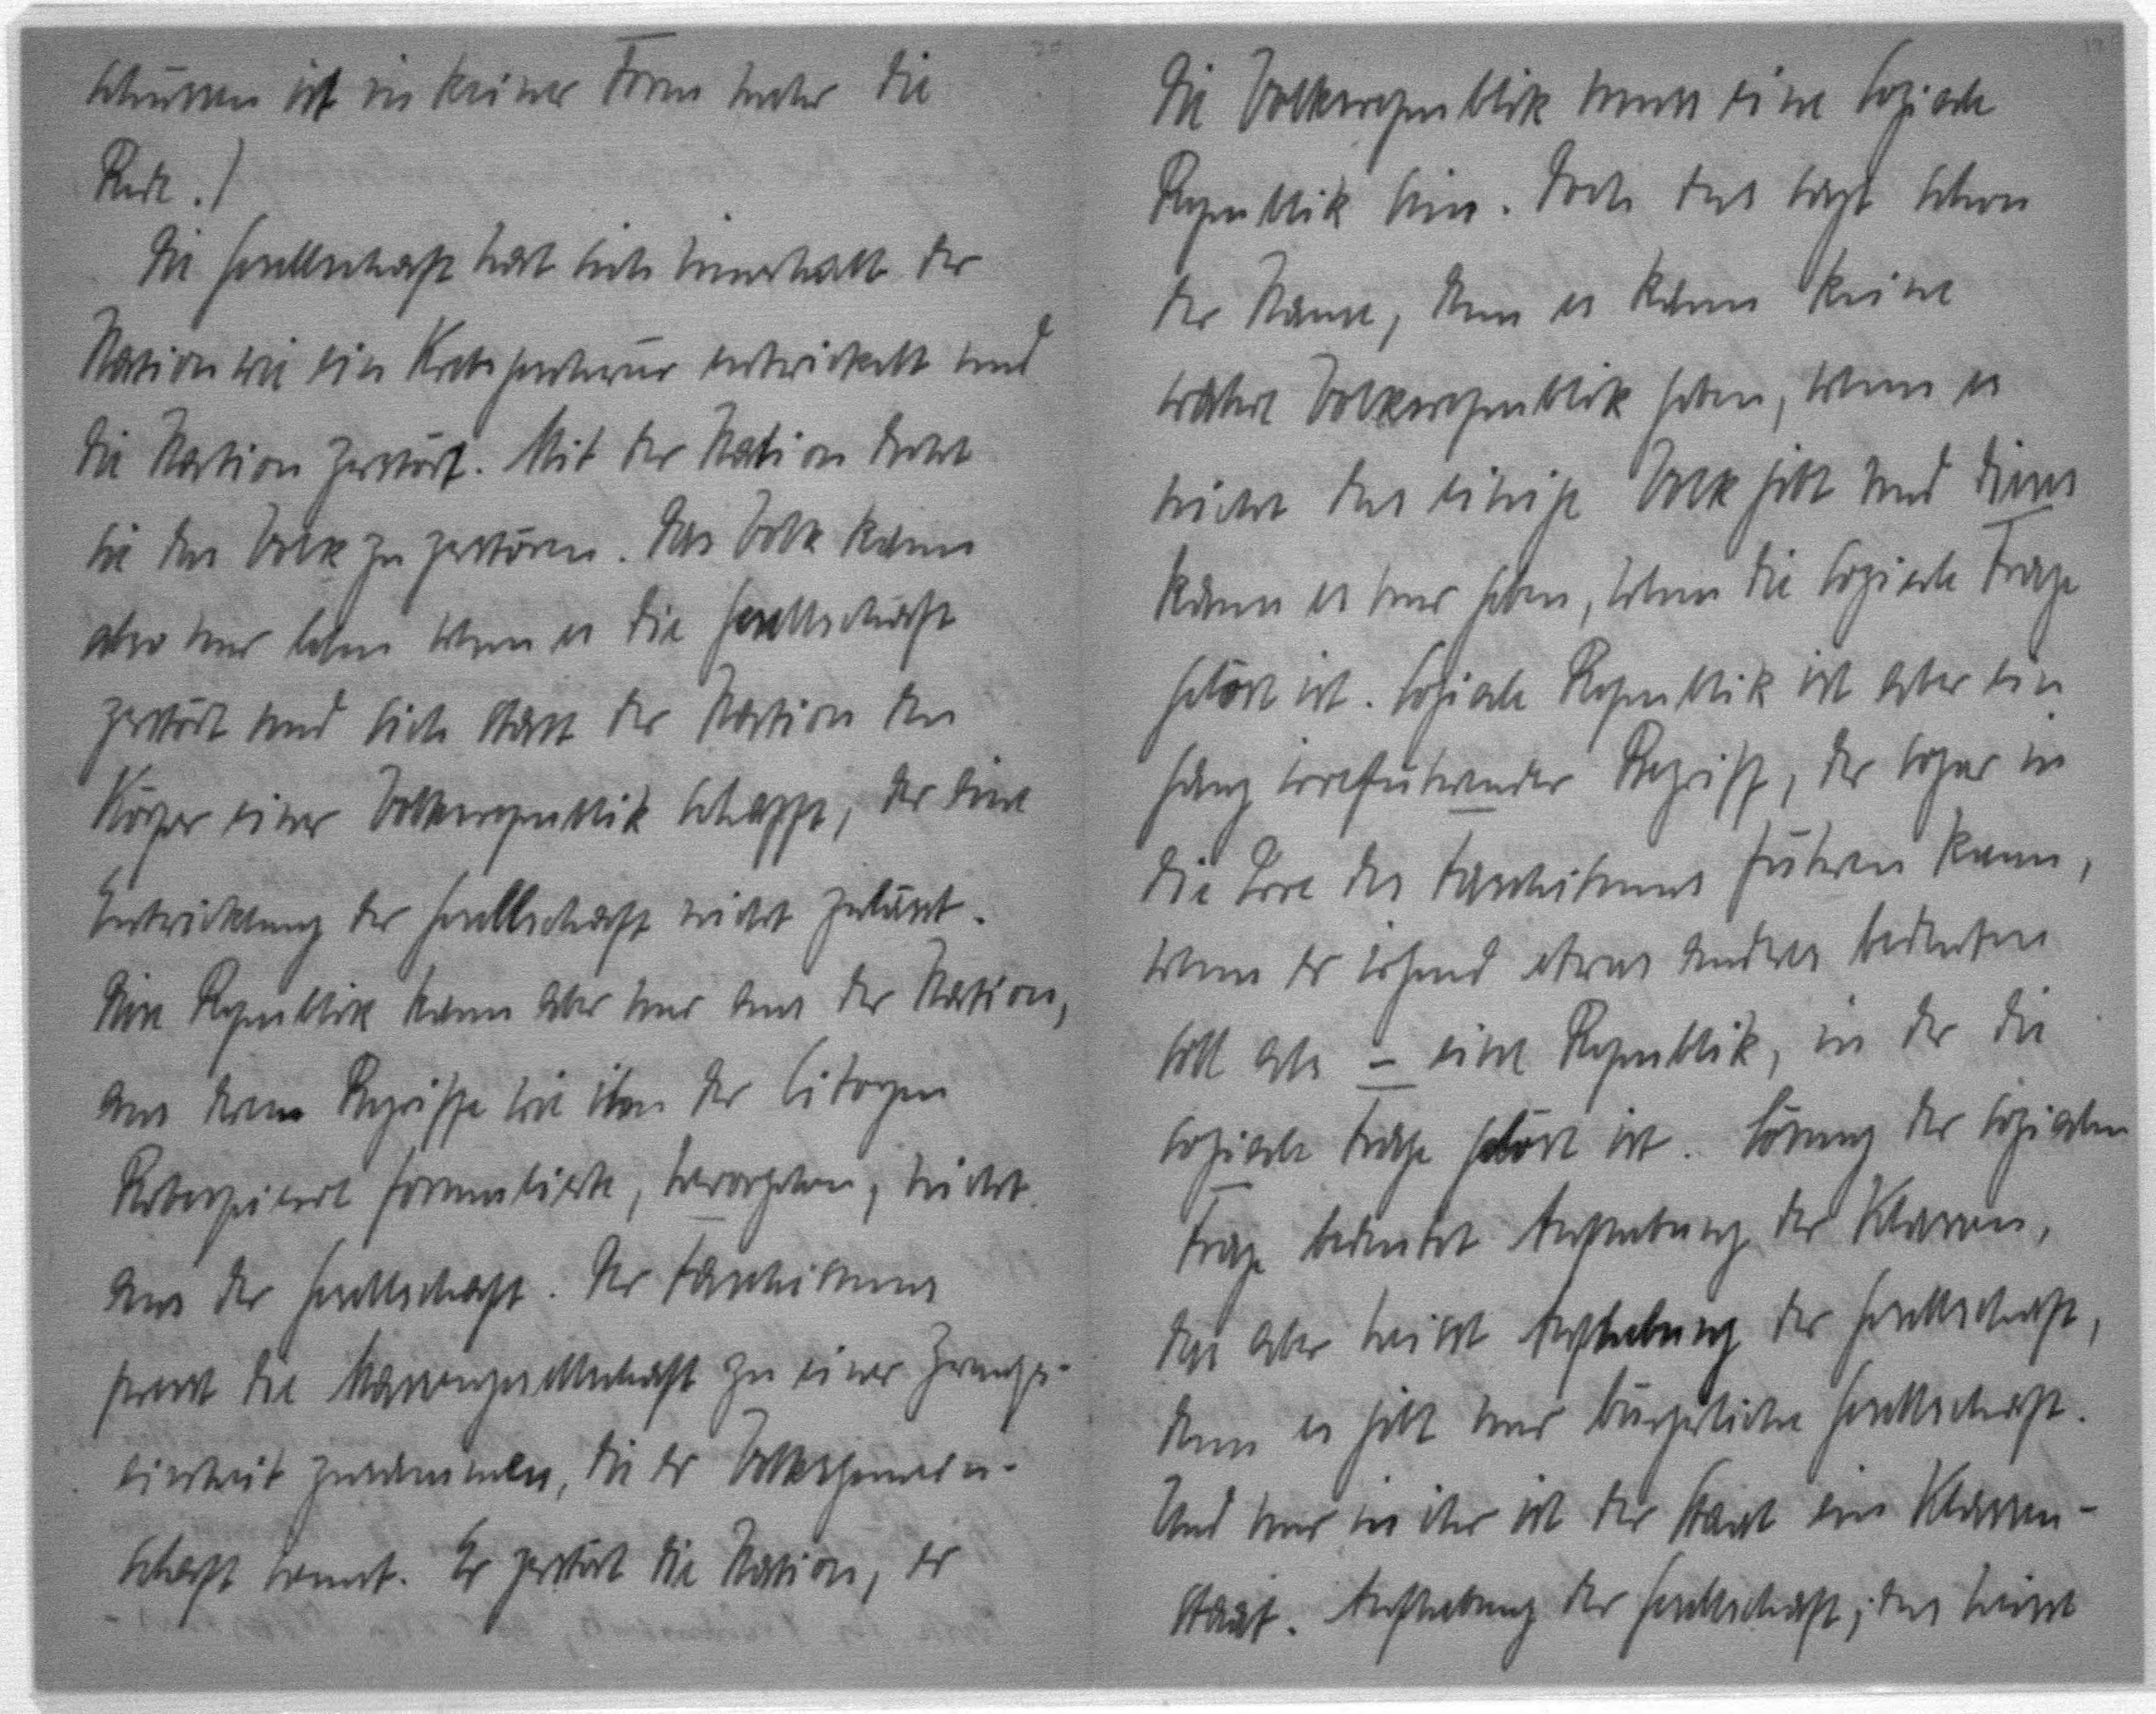 schüssen ist in keiner Form mehr die
Rede.)
Die Gesellschaft hat sich innerhalb der
Nation wie ein Krebsgeschwür entwickelt und
die Nation zerstört. Mit der Nation droht
sie das Volk zu zerstören. Das Volk kann
also nur leben wenn es die Gesellschaft
zerstört und sich statt der Nation den
Körper einer Volksrepublik schafft, der eine
Entwicklung der Gesellschaft nicht zulässt.
Diese Republik kann aber nur aus der Nation,
aus deren Begriffe wie ihn der Citoyen
Robespierre formulierte, hervorgehen, nicht
aus der Gesellschaft. Der Faschismus
presst die Massengesellschaft zu einer Zwangs-
einheit zusammen, die er Volksgemein-
schaft nennt. Er zerstört die Nation, er
Die Volksrepublik muss eine soziale
Republik sein. Doch das sagt schon
der Name, denn es kann keine
wahre Volksrepublik geben, wenn es
nicht das einige Volk gibt und dieses
kann es nur geben, wenn die soziale Frage
gelöst ist. Soziale Republik ist aber ein
ganz irreführender Begriff, der sogar in
die Irre des Faschismus führen kann,
wenn er irgend etwas anderes bedeuten
soll als – eine Republik, in der die
soziale Frage gelöst ist. Lösung der sozialen
Frage bedeutet Aufhebung der Klassen,
das aber heisst Aufhebung der Gesellschaft,
denn es gibt nur bürgerliche Gesellschaft.
Und nur in ihr ist der Staat ein Klassen-
staat. Aufhebung der Gesellschaft, das heisst